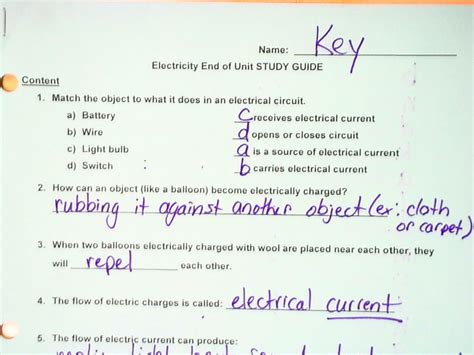 Name: Key
Electricity End of Unit STUDY GUIDE
Content
1. Match the object to what it does in an electrical circuit.
a) Battery c receives electrical current
b) Wire d opens or closes circuit
c) Light bulb a is a source of electrical current
d) Switch b carries electrical current
2. How can an object (like a balloon) become electrically charged?
rubbing it against another object (ex: cloth
or carpet)
3. When two balloons electrically charged with wool are placed near each other, they
will repel each other.
4. The flow of electric charges is called: electrical current
5. The flow of electric current can produce:
light